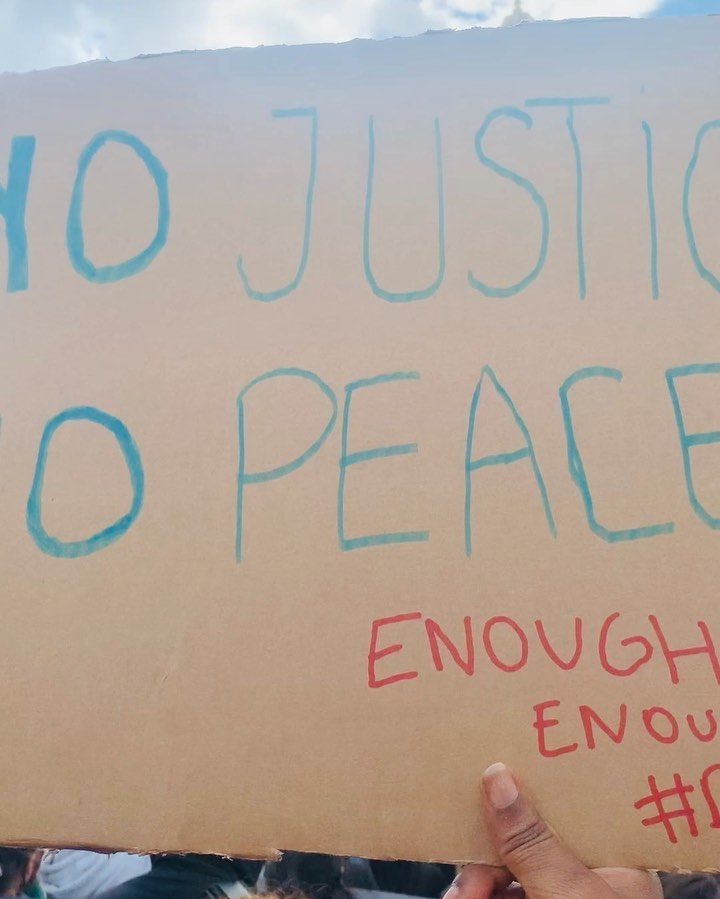 NO JUSTIC
NO PEACE
ENOUGH
ENOU
#